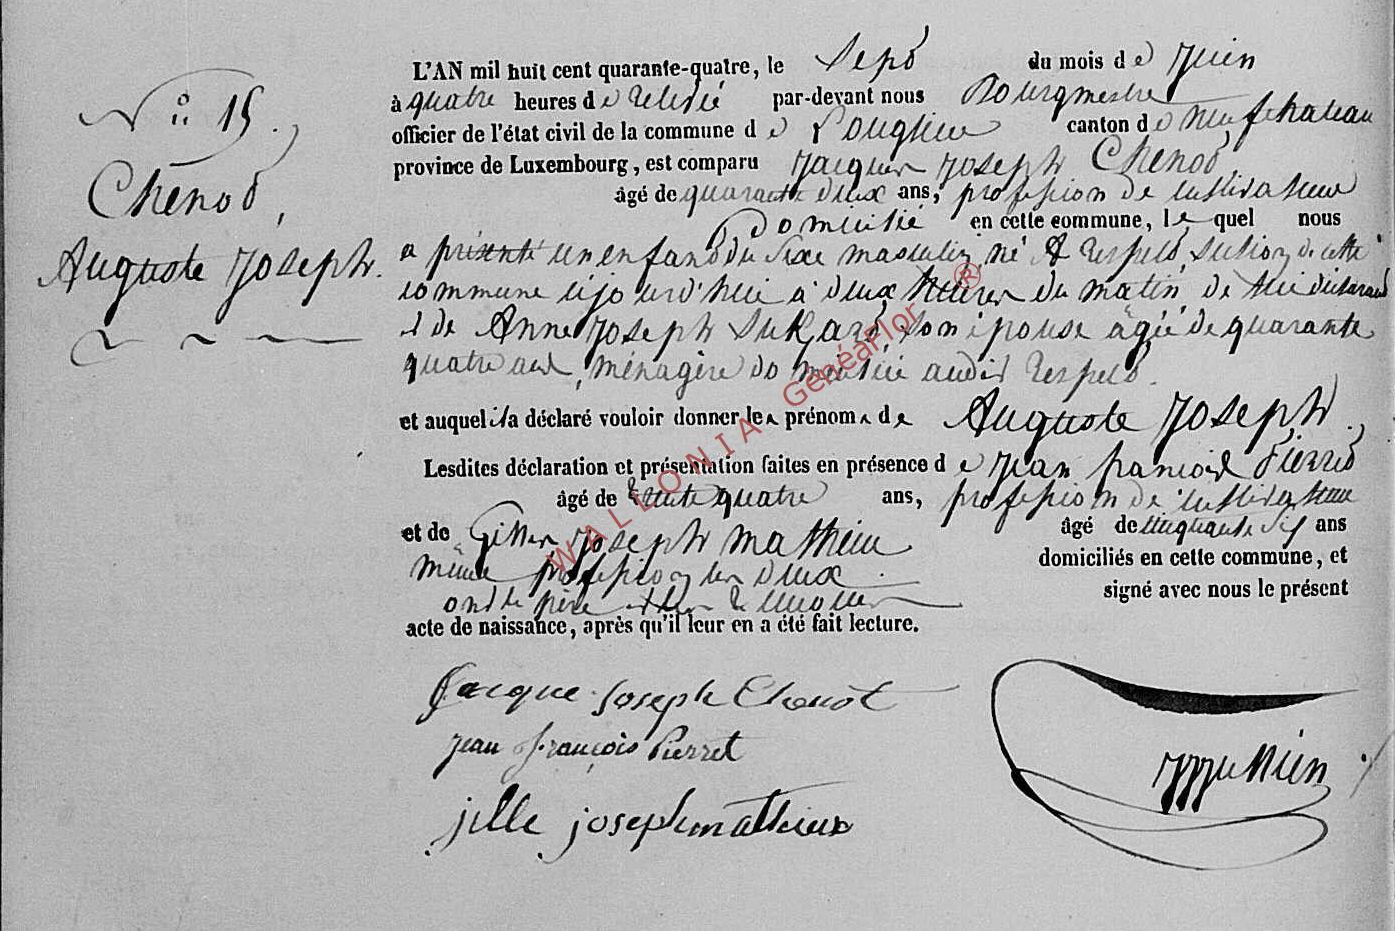 N° 15.
Chenot,
Auguste Joseph.
L'AN mil huit cent quarante-quatre, le sept du mois de Juin
à quatre heures de relevé par-devant nous Bourgmestre
officier de l'état civil de la commune de Longlier canton de Neufchateau
province de Luxembourg, est comparu Jacques Joseph Chenot
âgé de quarante deux ans, profession de cultivateur
Domicilié en cette commune, lequel nous
a présenté un enfant du sexe masculin, né à Respelt, section de cette
commune cejourd'hui à deux heures du matin, de lui déclarant
et de Anne Joseph son épouse âgée de quarante
quatre ans, ménagère domiciliée audit Respelt.
et auquel il a déclaré vouloir donner les prénoms de Auguste Joseph.
Lesdites déclaration et présentation faites en présence de Jean françois Pierret
âgé de trente quatre ans, profession de cultivateur
et de Gilles Joseph Mathieu âgé de cinquante six ans
même profession les deux domiciliés en cette commune, et
ont le père et les témoins signé avec nous le présent
acte de naissance, après qu'il leur en a été fait lecture.
Jacque Joseph Chenot
jean françois Pierret
jille joseph mathieux
WALLONIA GénéaFlor ®